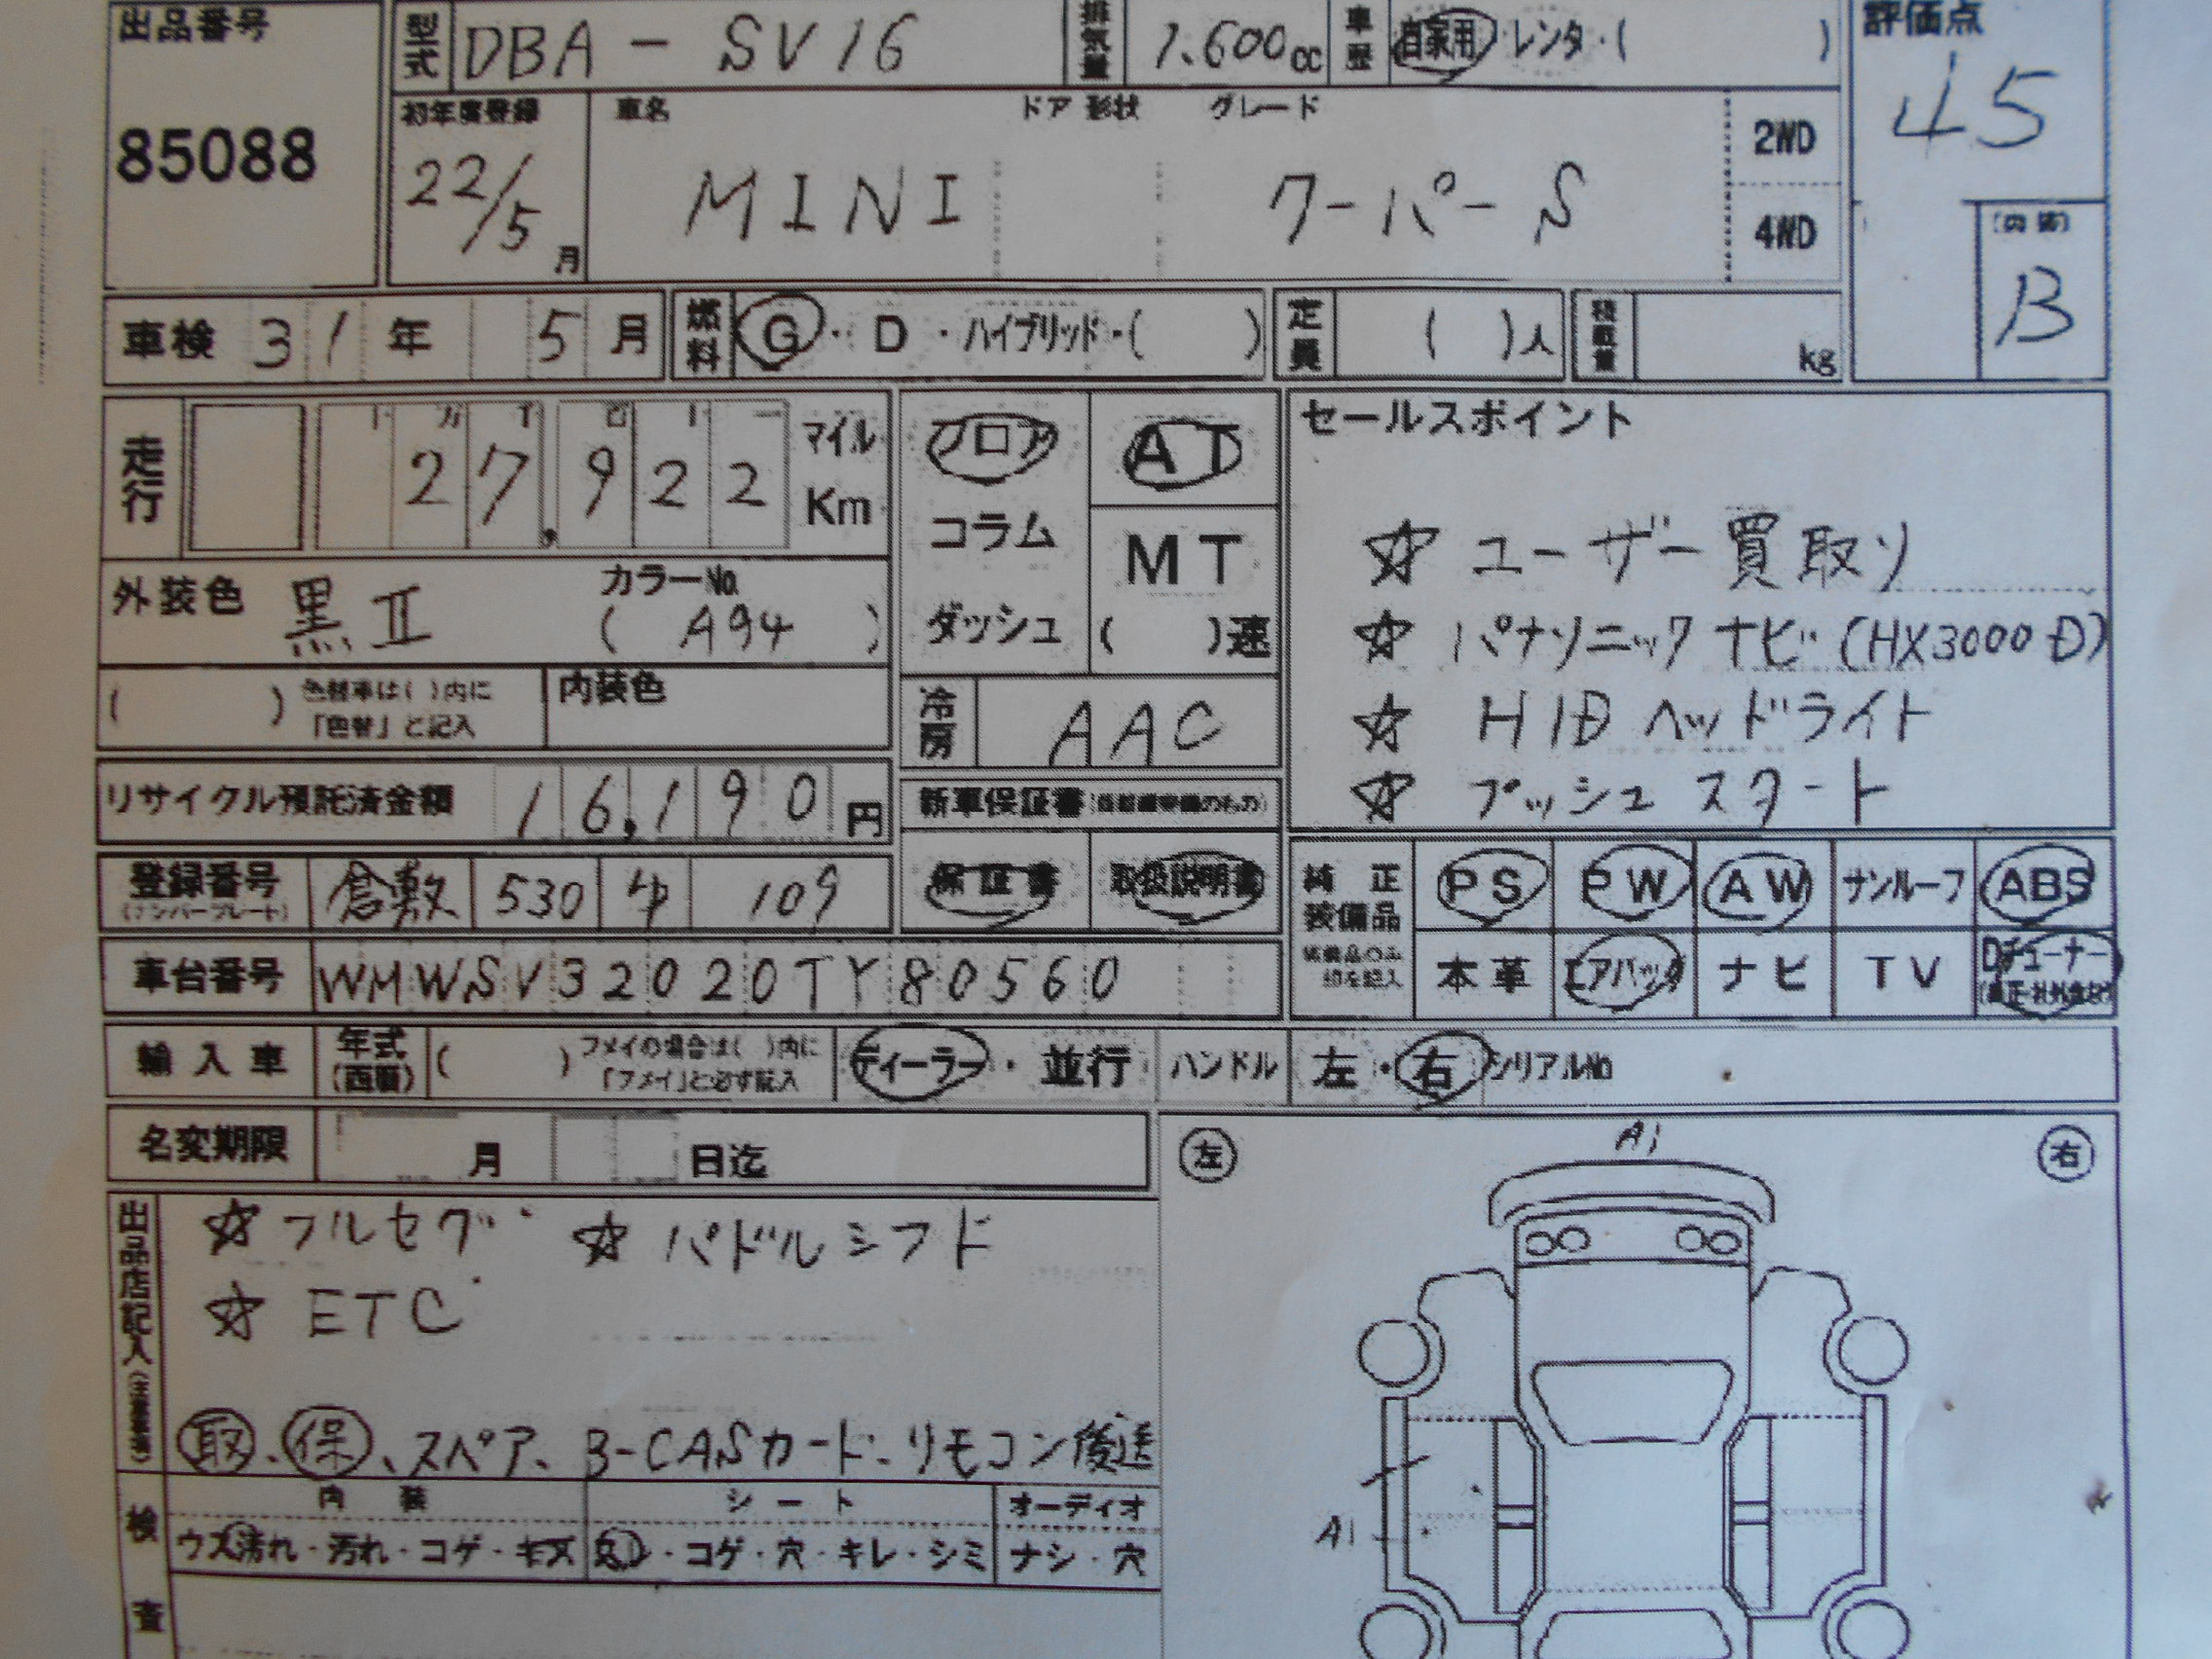 出品番号 型式 DBA-SV16 排気量 1.600cc 車歴 自家用・レンタ・( ) 評価点
85088 初年度登録 車名 ドア 形状 グレード 2WD 4.5
22/5月 MINI クーパーS 4WD (内装) B
車検 31年 5月 燃料 G・D・ハイブリッド・( ) 定員 ( )人 積載量 kg
走行 27,922 マイル Km フロア AT セールスポイント
コラム MT
☆ ユーザー買取り
外装色 黒II カラーNo. ( A94 ) ダッシュ ( )速 ☆ パナソニックナビ(HX3000D)
( ) 色替車は( )内に「色替」と記入 内装色 冷房 AAC ☆ HIDヘッドライト
リサイクル預託済金額 16,190円 新車保証書 ☆ プッシュスタート
登録番号 (ナンバープレート) 倉敷 530 ゆ 109 保証書 取扱説明書 純正装備品 PS PW AW サンルーフ ABS
車台番号 WMWSV32020TY80560 本革 エアバッグ ナビ TV Dチューナー
輸入車 年式(西暦) ( ) ディーラー・並行 ハンドル 左・右 シリアルNo
名変期限 月 日迄 左 右
A1
出品店記入 ☆ フルセグ ☆ パドルシフト
☆ ETC
取、保、スペア、B-CASカード、リモコン後送
検査 内装 シート オーディオ
ウス汚れ・汚れ・コゲ・キズ ・コゲ・穴・キレ・シミ ナシ・穴
A1